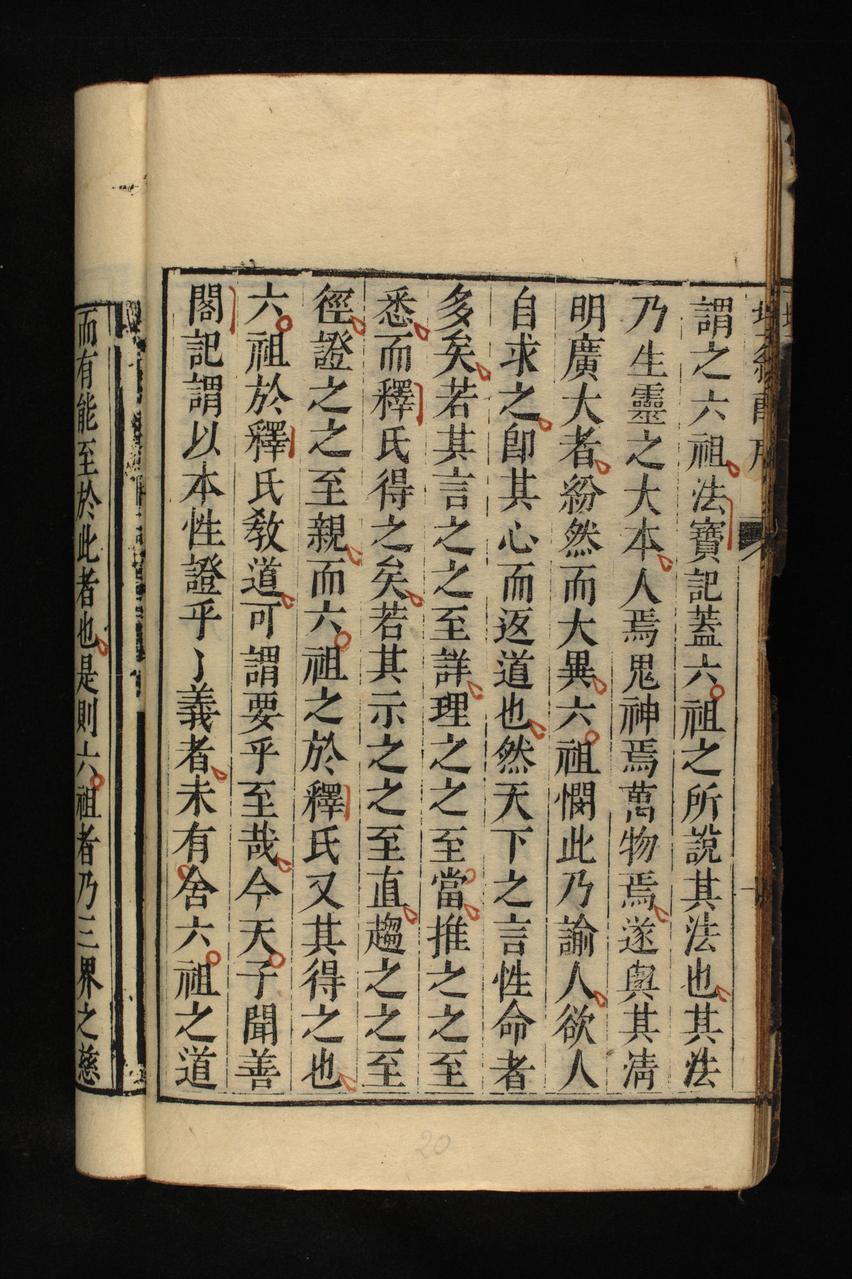 謂之六祖法寶記蓋六祖之所說其法也其法
乃生靈之大本人焉鬼神焉萬物焉遂與其淸
明廣大者紛然而大異六祖憫此乃諭人欲人
自求之卽其心而返道也然天下之言性命者
多矣若其言之之至詳理之之至當推之之至
悉而釋氏得之矣若其示之之至直趨之之至
徑證之之至親而六祖之於釋氏又其得之也
六祖於釋氏敎道可謂要乎至哉今天子聞善
閣記謂以本性證乎了義者未有舍六祖之道
而有能至於此者也是則六祖者乃三界之慈
20